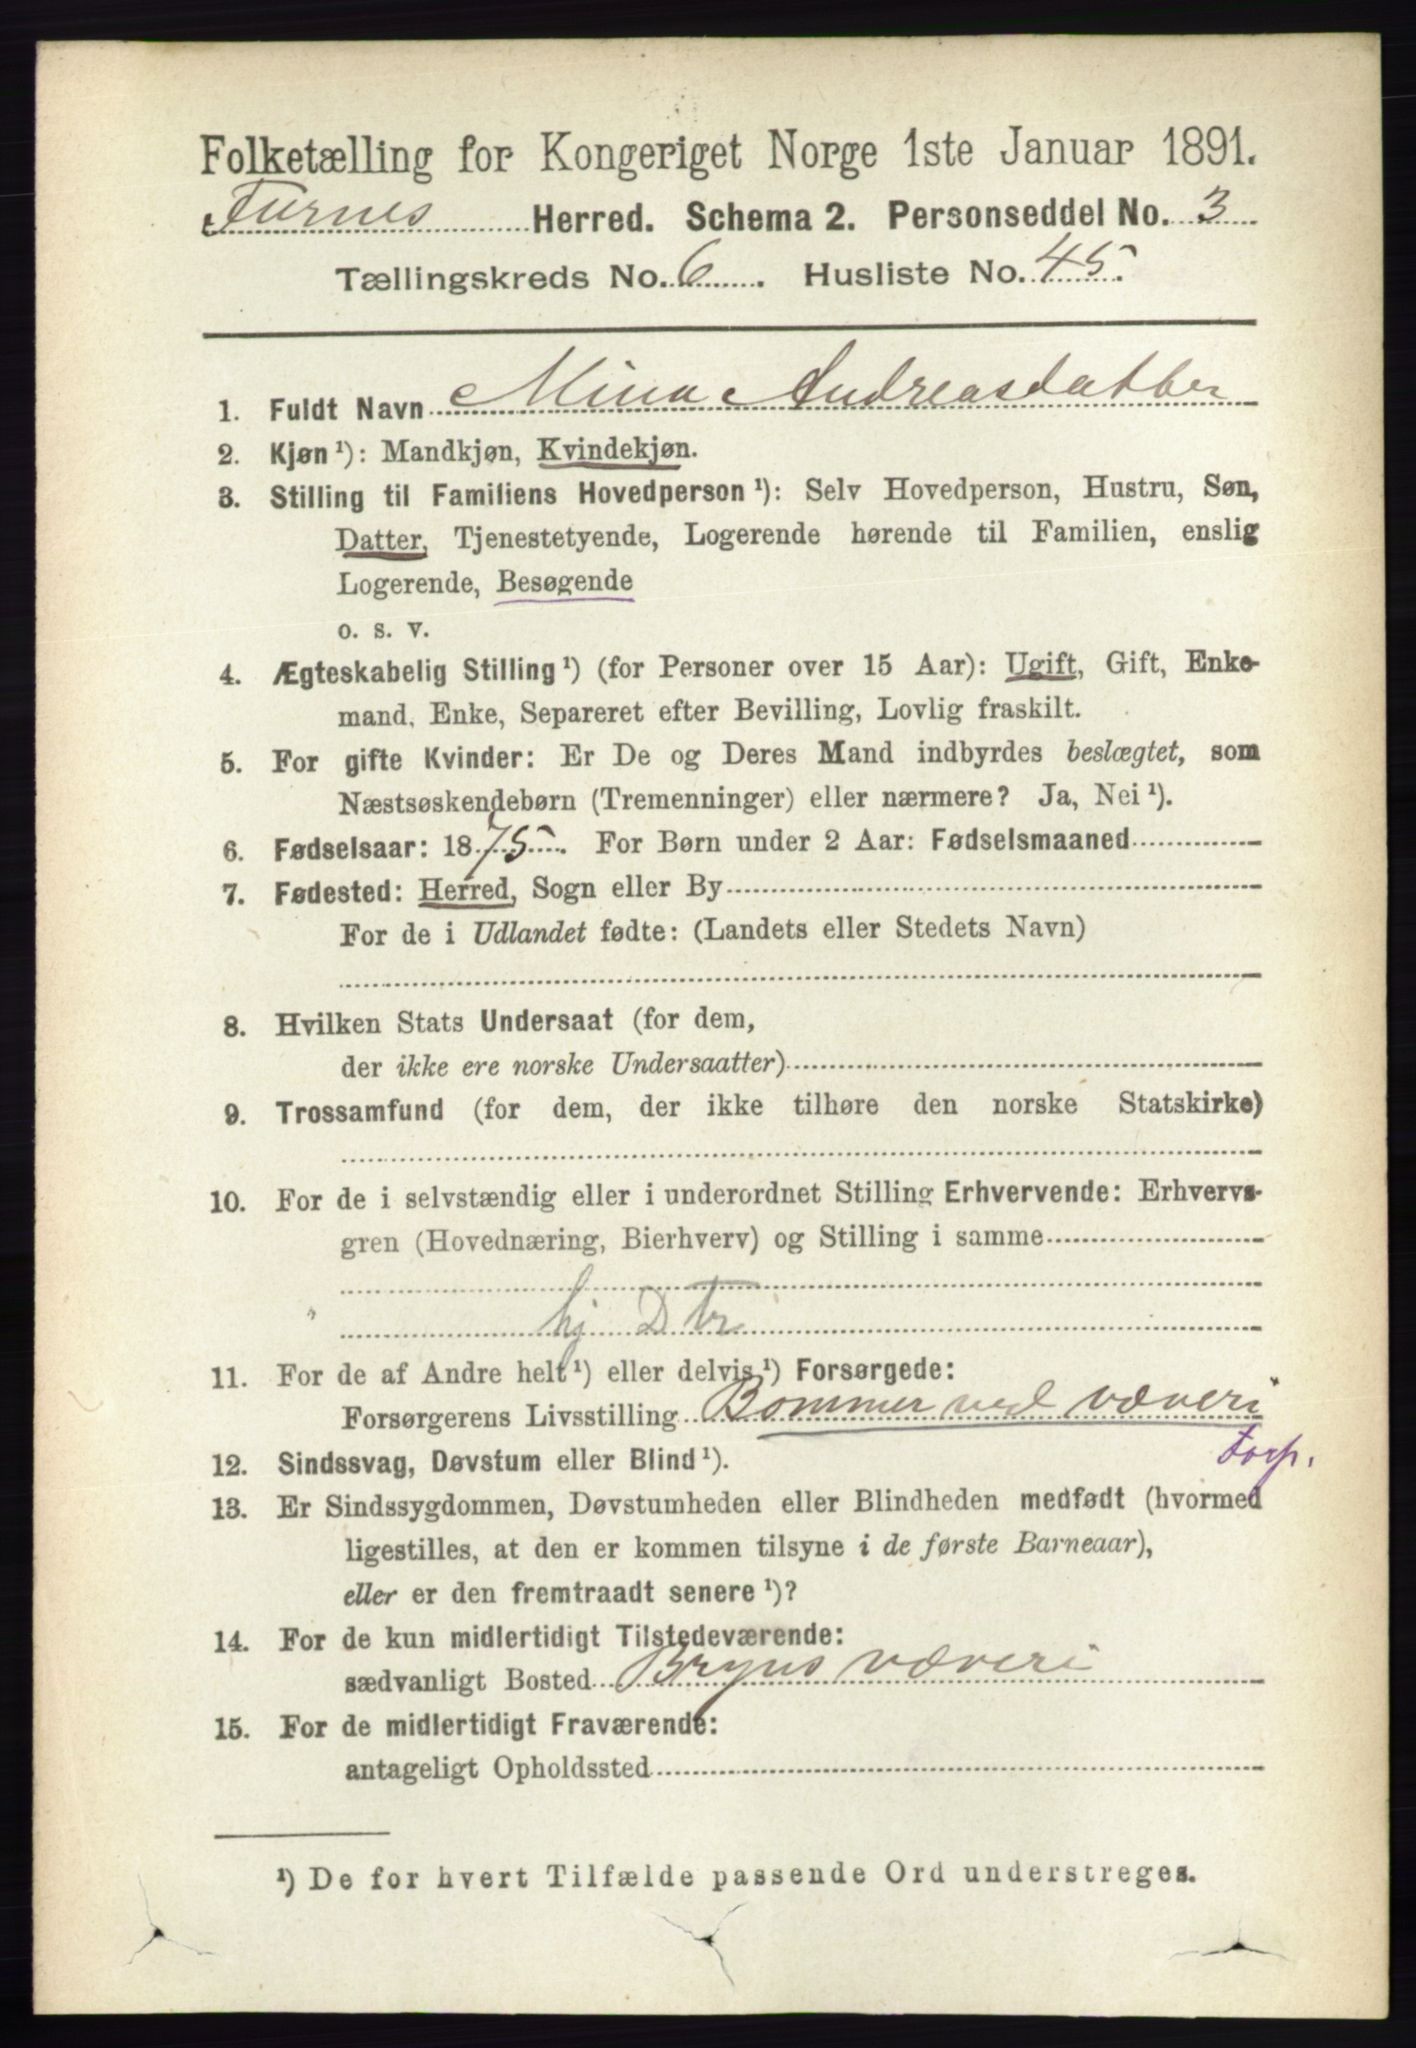 Folketælling for Kongeriget Norge 1ste Januar 1891.
Furnes Herred. Schema 2. Personseddel No. 3
Tællingskreds No. 6. Husliste No. 45.
1. Fuldt Navn Mina Andreasdatter
2. Kjøn ¹): Mandkjøn, Kvindekjøn.
3. Stilling til Familiens Hovedperson ¹): Selv Hovedperson, Hustru, Søn,
Datter, Tjenestetyende, Logerende hørende til Familien, enslig
Logerende, Besøgende
o. s. v.
4. Ægteskabelig Stilling ¹) (for Personer over 15 Aar): Ugift, Gift, Enke-
mand, Enke, Separeret efter Bevilling, Lovlig fraskilt.
5. For gifte Kvinder: Er De og Deres Mand indbyrdes beslægtet, som
Næstsøskendebørn (Tremenninger) eller nærmere? Ja, Nei ¹).
6. Fødselsaar: 1875. For Børn under 2 Aar: Fødselsmaaned
7. Fødested: Herred, Sogn eller By
For de i Udlandet fødte: (Landets eller Stedets Navn)
8. Hvilken Stats Undersaat (for dem,
der ikke ere norske Undersaatter)
9. Trossamfund (for dem, der ikke tilhøre den norske Statskirke)
10. For de i selvstændig eller i underordnet Stilling Erhvervende: Erhvervs-
gren (Hovednæring, Bierhverv) og Stilling i samme
hj D tr
11. For de af Andre helt ¹) eller delvis ¹) Forsørgede:
Forsørgerens Livsstilling Bommer ved væveri
12. Sindssvag, Døvstum eller Blind ¹).
13. Er Sindssygdommen, Døvstumheden eller Blindheden medfødt (hvormed
ligestilles, at den er kommen tilsyne i de første Barneaar),
eller er den fremtraadt senere ¹)?
14. For de kun midlertidigt Tilstedeværende:
sædvanligt Bosted Bryns væveri
15. For de midlertidigt Fraværende:
antageligt Opholdssted
¹) De for hvert Tilfælde passende Ord understreges.